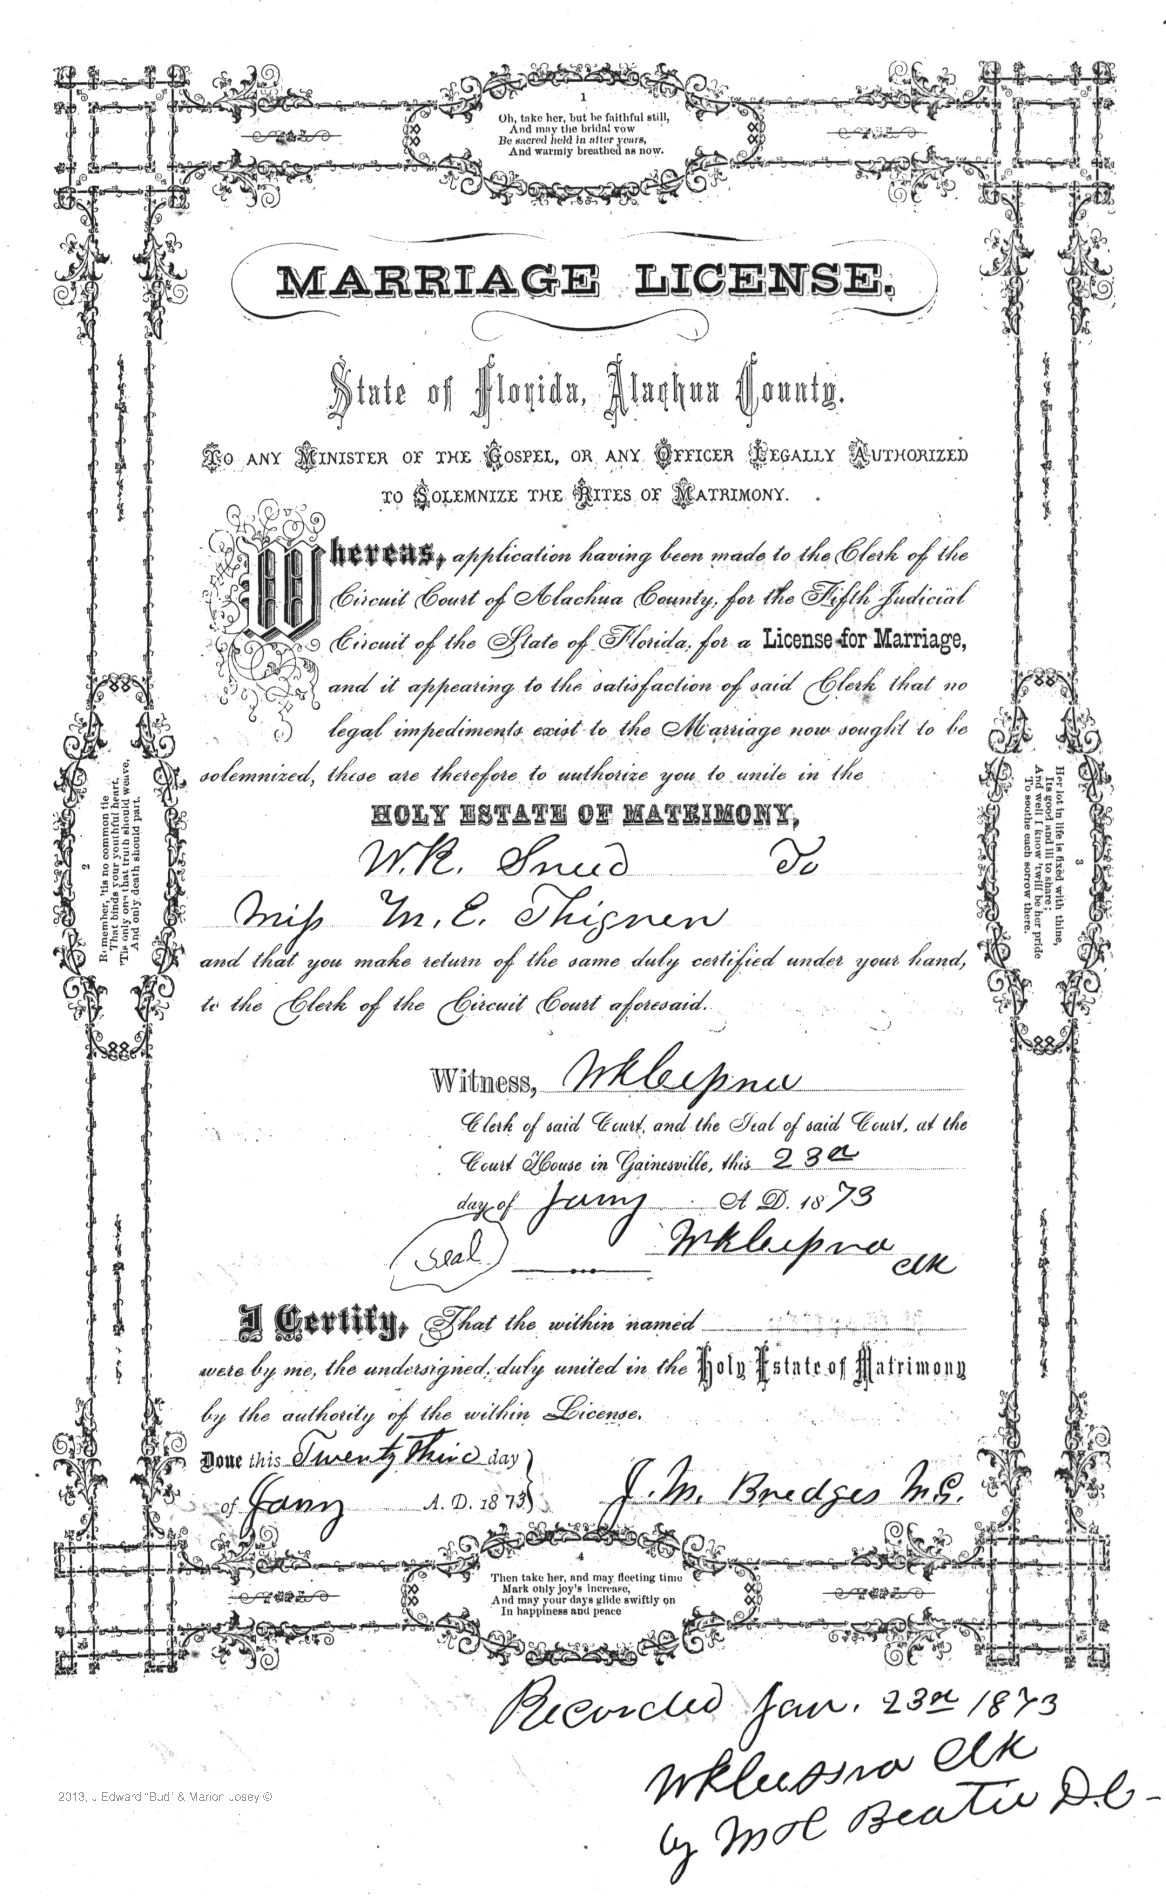 1
Oh, take her, but be faithful still,
And may the bridal vow
Be sacred held in after years,
And warmly breathed as now.
MARRIAGE LICENSE.
State of Florida, Alachua County.
TO ANY MINISTER OF THE GOSPEL, OR ANY OFFICER LEGALLY AUTHORIZED
TO SOLEMNIZE THE RITES OF MATRIMONY.
Whereas, application having been made to the Clerk of the
Circuit Court of Alachua County, for the Fifth Judicial
Circuit of the State of Florida, for a License for Marriage,
and it appearing to the satisfaction of said Clerk that no
legal impediments exist to the Marriage now sought to be
solemnized, these are therefore to authorize you to unite in the
HOLY ESTATE OF MATRIMONY,
W.R. Sneed To
Miss M. E. Thignen
and that you make return of the same duly certified under your hand,
to the Clerk of the Circuit Court aforesaid.
2
Remember, 'tis no common tie
That binds your youthful heart,
'Tis only one that truth should weave,
And only death should part.
3
Her lot in life is fixed with thine,
Its good and ill to share;
And well I know 'twill be her pride
To soothe each sorrow there.
Witness,
Clerk of said Court, and the Seal of said Court, at the
Court House in Gainesville, this 23d
day of Jany A D. 1873
Seal
Clk
I Certify, That the within named
were by me, the undersigned, duly united in the Holy Estate of Matrimony
by the authority of the within License.
Done this Twenty Third day
of Jany A. D. 1873
J. M. Bridges M.G.
4
Then take her, and may fleeting time
Mark only joy's increase,
And may your days glide swiftly on
In happiness and peace
Recorded Jan. 23d 1873
Clk
by Beatie D.C-
2013, J Edward "Bud" & Marion Josey ©